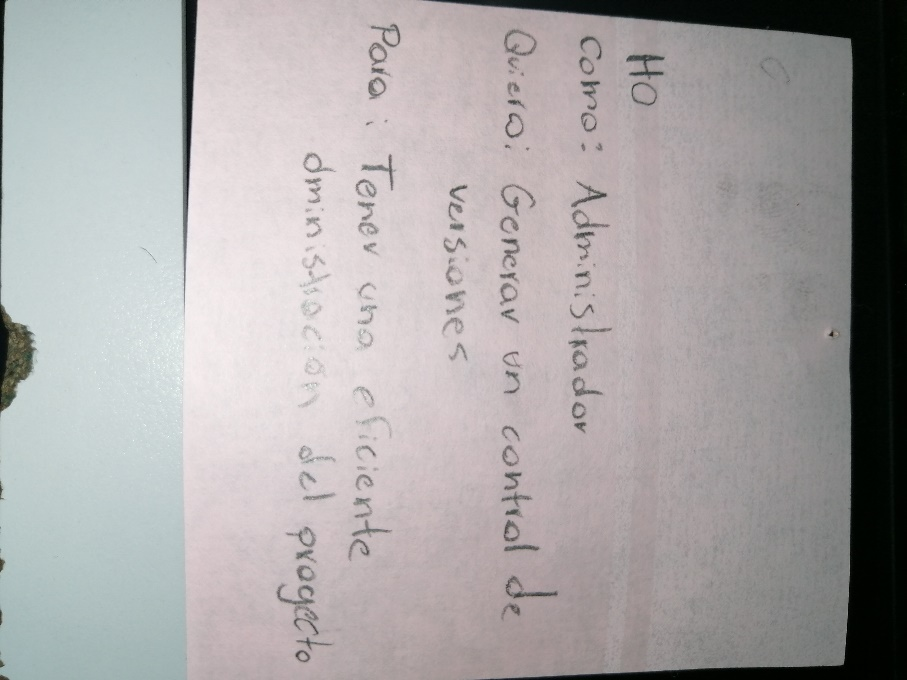 HO
Como: Administrador
Quiero: Generar un control de
versiones
Para: Tener una eficiente
dministración del proyecto